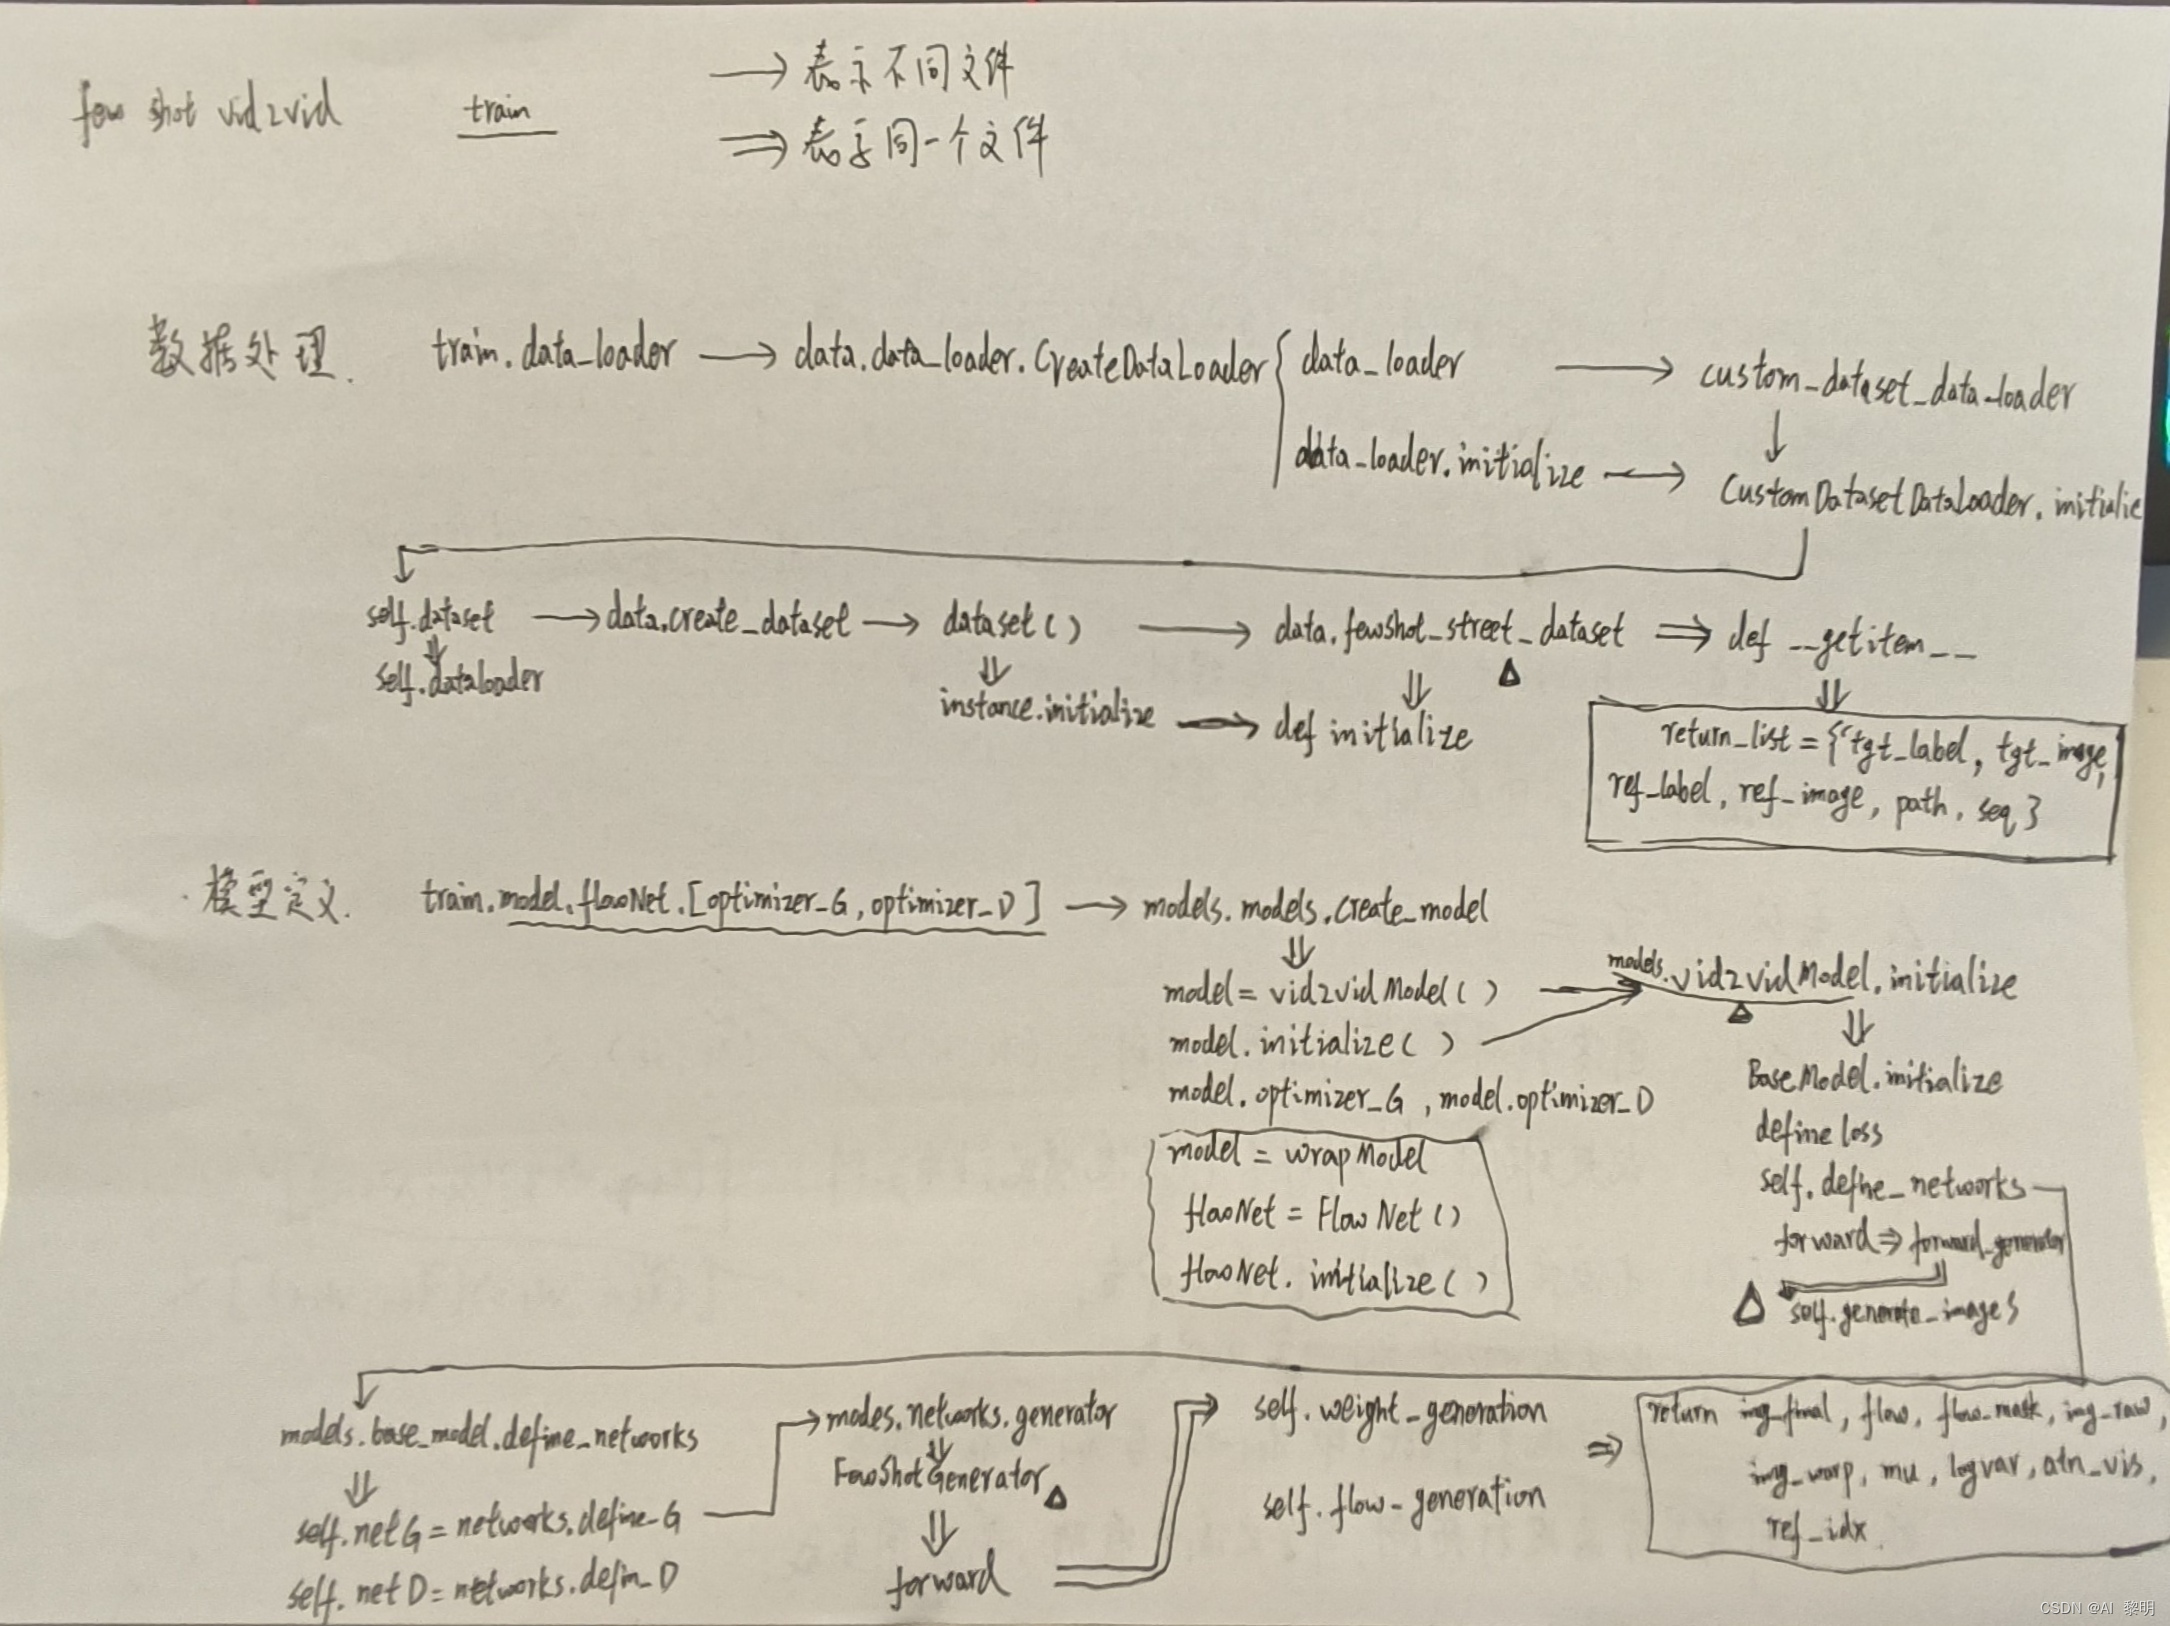 few shot vid2vid train → 表示不同文件
⇒ 表示同一个文件
数据处理. train.data_loader → data.data_loader.CreateDataLoader { data_loader → custom_dataset_data_loader
data_loader.initialize → CustomDatasetDataLoader.initialie
self.dataset → data.create_dataset → dataset() → data.fewshot_street_dataset ⇒ def __getitem__
self.dataloader
instance.initialize → def initialize
return_list = {"tgt_label, tgt_image,
ref_label, ref_image, path, seq}
模型定义. train.model.flowNet.[optimizer_G, optimizer_D] → models.models.create_model
model = vid2vidModel() → models.vid2vidModel.initialize
model.initialize()
model.optimizer_G, model.optimizer_D
model = wrapModel
flowNet = FlowNet()
flowNet.initialize()
BaseModel.initialize
define loss
self.define_networks
forward ⇒ forward_generator
self.generate_images
models.base_model.define_networks
self.netG = networks.define_G
self.netD = networks.defin_D
modes.networks.generator
FewShotGenerator
forward
self.weight_generation
self.flow-generation
⇒ return img_final, flow, flow_mask, img_raw,
img_warp, mu, logvar, atn_vis,
ref_idx
CSDN @AI 黎明